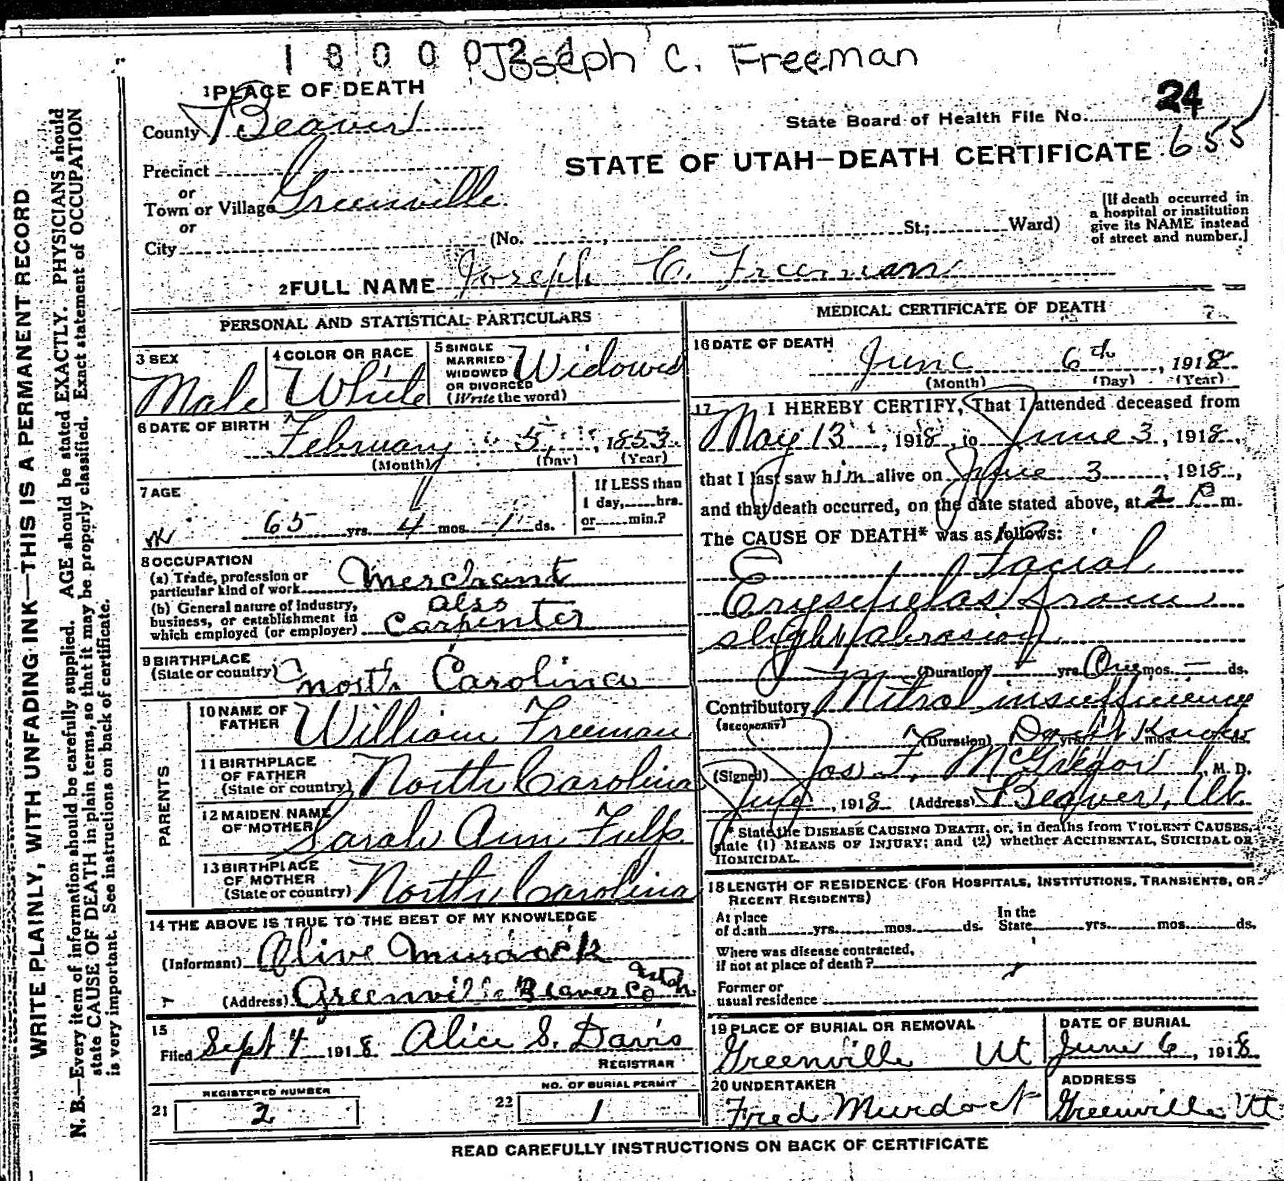 1 8 0 0 0 2 4 Joseph C. Freeman
WRITE PLAINLY, WITH UNFADING INK—THIS IS A PERMANENT RECORD
N. B.—Every item of information should be carefully supplied. AGE should be stated EXACTLY. PHYSICIANS should
state CAUSE OF DEATH in plain terms, so that it may be properly classified. Exact statement of OCCUPATION
is very important. See instructions on back of certificate.
1 PLACE OF DEATH
County Beaver
State Board of Health File No. 24
655
STATE OF UTAH—DEATH CERTIFICATE
Precinct
or
Town or Village Greenville
or
City (No. , St.; Ward)
[If death occurred in
a hospital or institution
give its NAME instead
of street and number.]
2 FULL NAME Joseph C. Freeman
PERSONAL AND STATISTICAL PARTICULARS
3 SEX
Male
4 COLOR OR RACE
White
5 SINGLE
MARRIED
WIDOWED
OR DIVORCED
(Write the word)
Widowed
6 DATE OF BIRTH
February 5, 1853
(Month) (Day) (Year)
7 AGE
65 yrs. 4 mos. 1 ds.
If LESS than
1 day, hrs.
or min.?
8 OCCUPATION
(a) Trade, profession or
particular kind of work Merchant
(b) General nature of Industry,
business, or establishment in
which employed (or employer)
also
Carpenter
9 BIRTHPLACE
(State or country) North Carolina
PARENTS
10 NAME OF
FATHER William Freeman
11 BIRTHPLACE
OF FATHER
(State or country) North Carolina
12 MAIDEN NAME
OF MOTHER Sarah Ann Fulp
13 BIRTHPLACE
OF MOTHER
(State or country) North Carolina
14 THE ABOVE IS TRUE TO THE BEST OF MY KNOWLEDGE
(Informant) Olive Murdock
(Address) Greenville Beaver Co Utah
15
Filed Sept 4 1918 Alice S. Davis
REGISTRAR
REGISTERED NUMBER
21 2
NO. OF BURIAL PERMIT
22 1
MEDICAL CERTIFICATE OF DEATH
16 DATE OF DEATH
June 6th, 1918
(Month) (Day) (Year)
17 I HEREBY CERTIFY, That I attended deceased from
May 13, 1918, to June 3, 1918,
that I last saw him alive on June 3, 1918,
and that death occurred, on the date stated above, at 2 P m.
The CAUSE OF DEATH* was as follows:
Facial
Erysipelas from
slight abrasion
(Duration) yrs. One mos. ds.
Contributory Mitral insufficiency
(SECONDARY)
(Duration) Don't Know yrs. mos. ds.
(Signed) Jos F. McGregor, M. D.
, 1918 (Address) Beaver, Ut.
* State the DISEASE CAUSING DEATH, or, in deaths from VIOLENT CAUSES,
state (1) MEANS OF INJURY; and (2) whether ACCIDENTAL, SUICIDAL OR
HOMICIDAL.
18 LENGTH OF RESIDENCE (FOR HOSPITALS, INSTITUTIONS, TRANSIENTS, OR
RECENT RESIDENTS)
At place
of death yrs. mos. ds.
In the
State yrs. mos. ds.
Where was disease contracted,
if not at place of death?
Former or
usual residence
19 PLACE OF BURIAL OR REMOVAL
Greenville Ut
DATE OF BURIAL
June 6, 1918
20 UNDERTAKER
Fred Murdock
ADDRESS
Greenville Ut.
READ CAREFULLY INSTRUCTIONS ON BACK OF CERTIFICATE